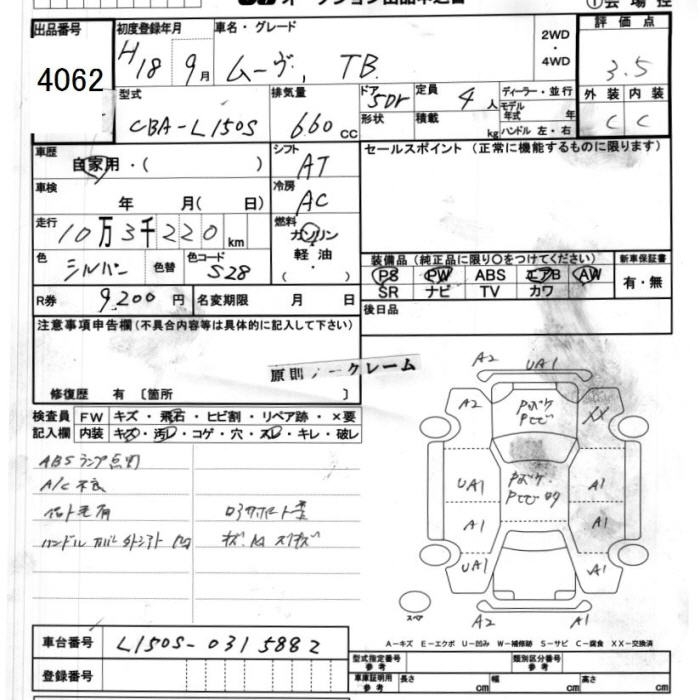 出品番号
4062
初度登録年月
H18 9月
車名・グレード
ムーヴ, TB
2WD
・
4WD
評価点
3.5
外装 内装
C C
型式
CBA-L150S
排気量
660 cc
ドア 5Dr
形状
定員 4人
積載 kg
ディーラー・並行
モデル
年式 年
ハンドル 左・右
車歴
自家用・( )
シフト
AT
セールスポイント (正常に機能するものに限ります)
車検
年 月( 日)
冷房
AC
走行
10万3千220km
燃料
ガソリン
軽油
・( )
色
シルバー
色替
色コード
S28
装備品 (純正品に限り〇をつけてください)
新車保証書
PS PW ABS エアB AW
SR ナビ TV カワ
有・無
R券 9,200円
名変期限 月 日
後日品
注意事項申告欄(不具合内容等は具体的に記入して下さい)
原則ノークレーム
修復歴 有 〔箇所 〕
検査員
記入欄
FW キズ・飛石・ヒビ割・リペア跡・×要
内装 キズ・汚レ・コゲ・穴・スレ・キレ・破レ
ABSランプ点灯
A/C不良
A2 UA1
A2 XX
UA1 A1
A1 A1
UA1 A1
A2 A1
スペア
A−キズ E−エクボ U−凹み W−補修跡 S−サビ C−腐食 XX−交換済
車台番号
L150S-0315882
登録番号
型式指定番号
参考
類別区分番号
参考
車庫証明用
参考
長さ cm 幅 cm 高さ cm